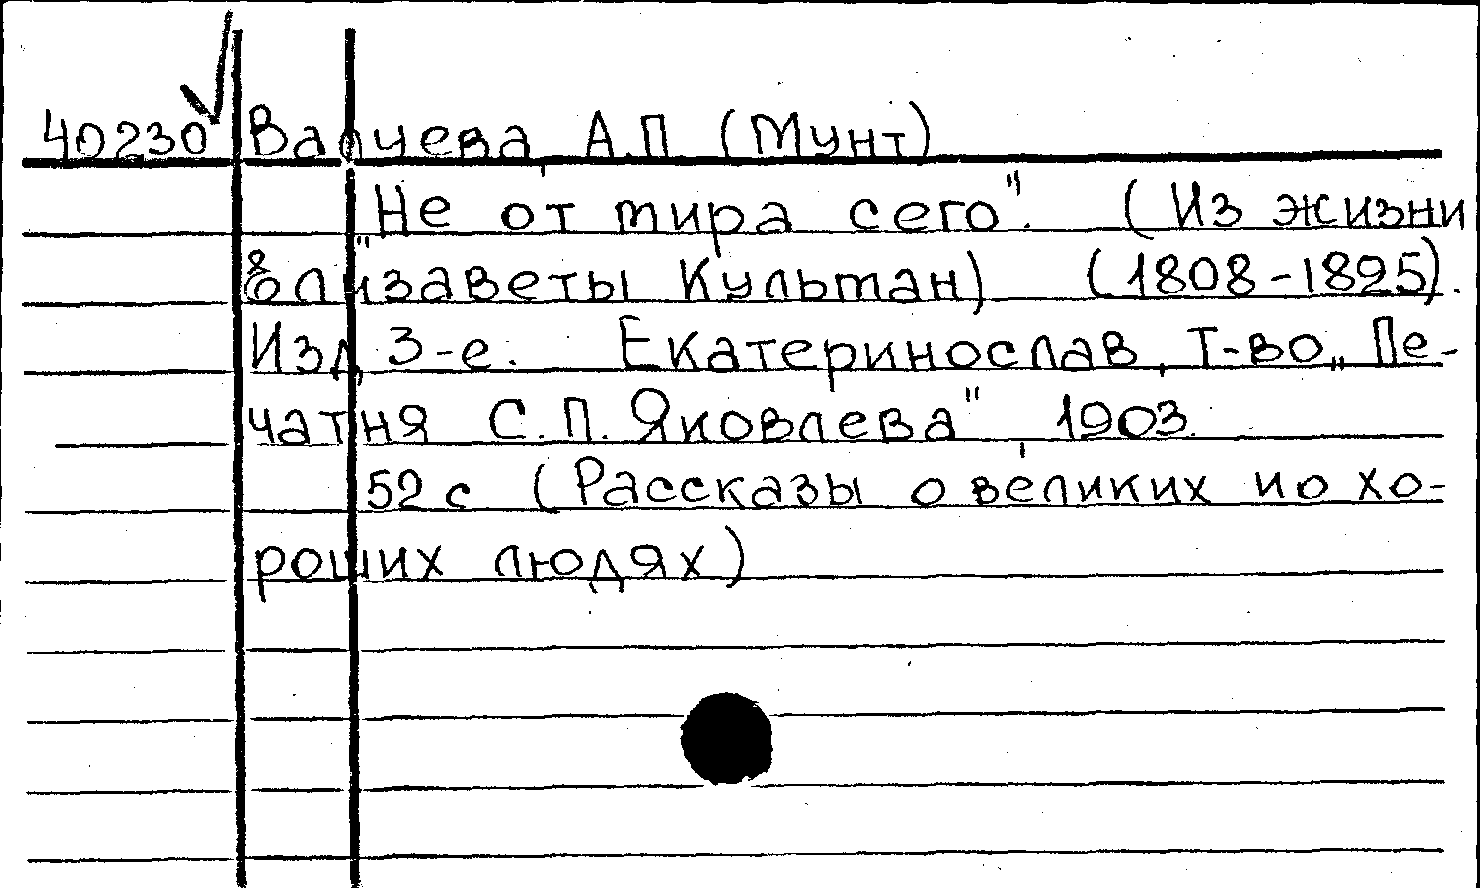 40230 Валуева, А.П (Мунт)
"Не от мира сего". (Из жизни
Елизаветы Кульман) (1808-1825).
Изд, 3-е. Екатеринослав, Т-во „Пе-
чатня С.П. Яковлева", 1903.
52 с (Рассказы о великих и о хо-
роших людях)